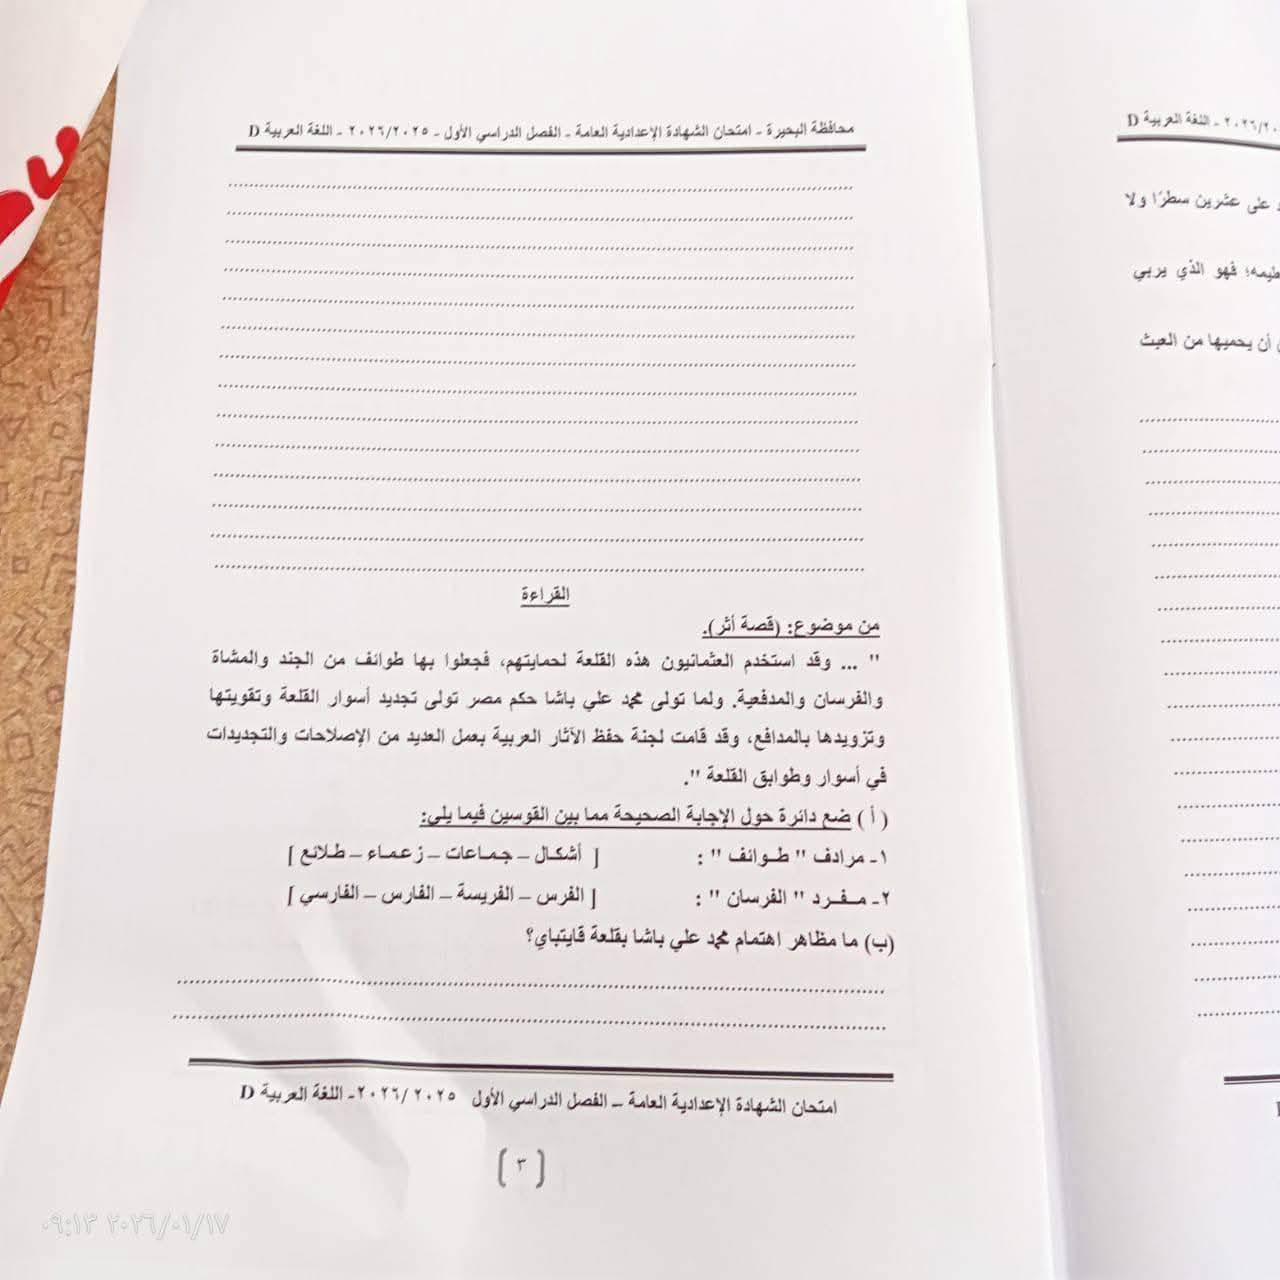 محافظة البحيرة - امتحان الشهادة الإعدادية العامة - الفصل الدراسي الأول - ٢٠٢٦/٢٠٢٥ - اللغة العربية D
القراءة
من موضوع: (قصة أثر).
" ... وقد استخدم العثمانيون هذه القلعة لحمايتهم، فجعلوا بها طوائف من الجند والمشاة
والفرسان والمدفعية. ولما تولى محمد علي باشا حكم مصر تولى تجديد أسوار القلعة وتقويتها
وتزويدها بالمدافع، وقد قامت لجنة حفظ الآثار العربية بعمل العديد من الإصلاحات والتجديدات
في أسوار وطوابق القلعة ".
( أ ) ضع دائرة حول الإجابة الصحيحة مما بين القوسين فيما يلي:
١- مرادف " طوائف " : [ أشكال – جماعات – زعماء – طلائع ]
٢- مفرد " الفرسان " : [ الفرس – الفريسة – الفارس – الفارسي ]
(ب) ما مظاهر اهتمام محمد علي باشا بقلعة قايتباي؟
امتحان الشهادة الإعدادية العامة – الفصل الدراسي الأول ٢٠٢٥ /٢٠٢٦- اللغة العربية D
[ ٣ ]
٢٠٢٦/٠١/١٧ ٠٩:١٣
- اللغة العربية D
على عشرين سطرًا ولا
فهو الذي يربي
أن يحميها من العبث